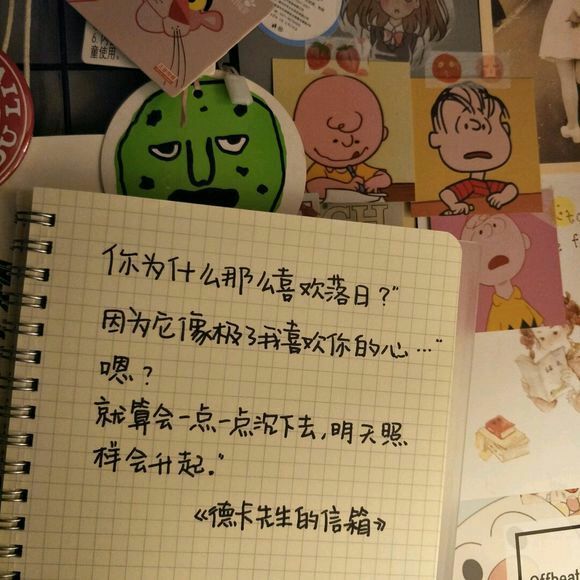 童使用。
你为什么那么喜欢落日？"
因为它像极了我喜欢你的心…"
嗯？
就算会一点一点沉下去，明天照
样会升起。"
《德卡先生的信箱》
Offbeat